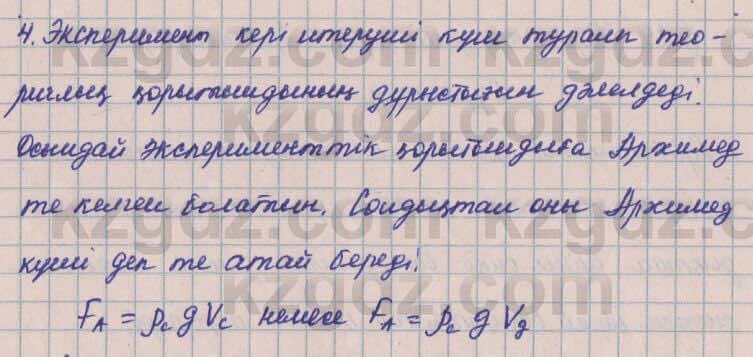 4. Эксперимент кері итеруші күш туралы тео-
риялық қорытындының дұрыстығын дәлелдеді.
Осындай эксперименттік қорытындыға Архимед
те келген болатын. Сондықтан оны Архимед
күші деп те атай береді.
F_A = ρ_c g V_c немесе F_A = ρ_c g V_g
kzgdz.com